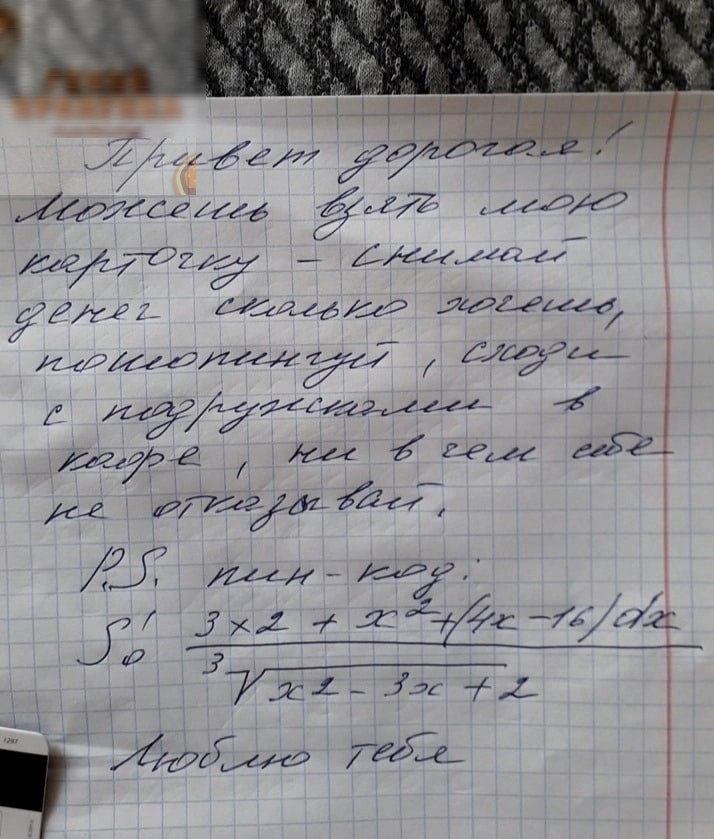 Привет дорогая!
Можешь взять мою
карточку - снимай
денег сколько хочешь,
пошопингуй, сходи
с подружками в
кафе, ни в чем себе
не отказывай.
P.S. пин-код:
∫₀¹ (3×2 + x² + (4x - 16) dx) / (³√x2 - 3x + 2)
Люблю тебя
1297